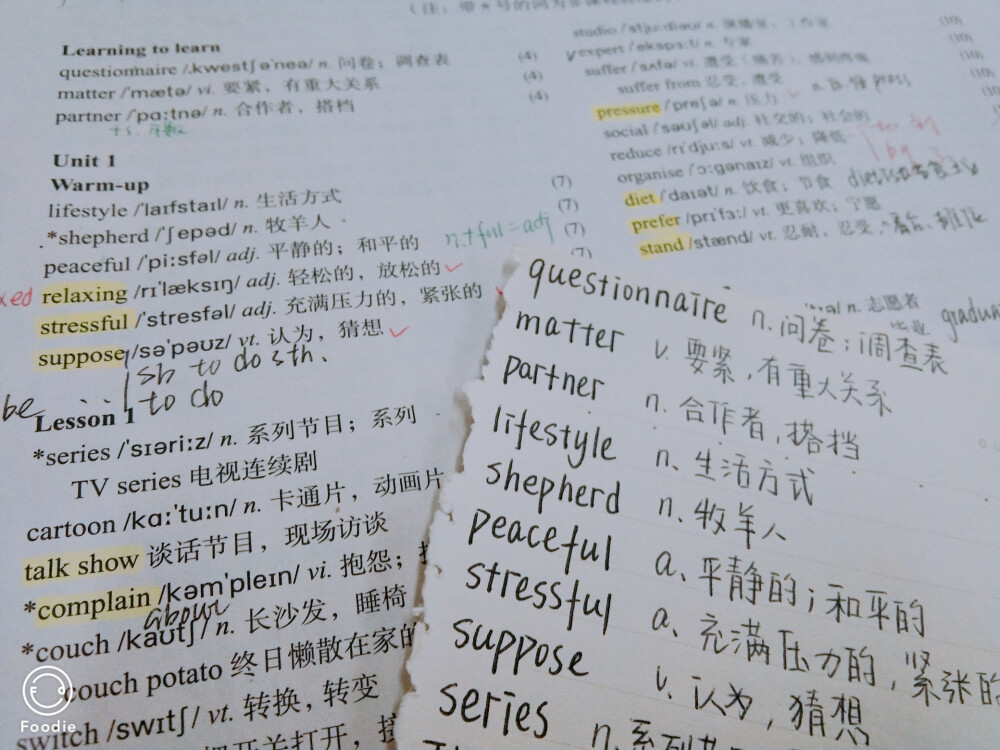 Learning to learn
questionnaire /ˌkwestʃəˈneə/ n. 问卷；调查表 (4)
matter /ˈmætə/ vi. 要紧，有重大关系 (4)
partner /ˈpɑːtnə/ n. 合作者，搭档 (4)
Unit 1
Warm-up
lifestyle /ˈlaɪfstaɪl/ n. 生活方式 (7)
*shepherd /ˈʃepəd/ n. 牧羊人 (7)
peaceful /ˈpiːsfəl/ adj. 平静的；和平的 n.+ful=adj (7)
relaxing /rɪˈlæksɪŋ/ adj. 轻松的，放松的 (7)
stressful /ˈstresfəl/ adj. 充满压力的，紧张的
suppose /səˈpəʊz/ vt. 认为，猜想
sb to do sth.
be to do
Lesson 1
*series /ˈsɪəriːz/ n. 系列节目；系列
TV series 电视连续剧
cartoon /kɑːˈtuːn/ n. 卡通片，动画片
talk show 谈话节目，现场访谈
*complain /kəmˈpleɪn/ vi. 抱怨；
about
*couch /kaʊtʃ/ n. 长沙发，睡椅
couch potato 终日懒散在家的
switch /swɪtʃ/ vt. 转换，转变
把开关打开，
studio /ˈstjuːdiəʊ/ n. 演播室，工作室 (10)
expert /ˈekspɜːt/ n. 专家 (10)
suffer /ˈsʌfə/ vt. 遭受 (10)
suffer from 忍受，遭受 (10)
pressure /ˈpreʃə/ n. 压力
social /ˈsəʊʃəl/ adj. 社交的；社会的
reduce /rɪˈdjuːs/ vt. 减少；降低
organise /ˈɔːgənaɪz/ vt. 组织
diet /ˈdaɪət/ n. 饮食；节食
prefer /prɪˈfɜː/ vt. 更喜欢；宁愿
stand /stænd/ vt. 忍耐，忍受
n. 志愿者
毕业
questionnaire n. 问卷；调查表
matter v. 要紧，有重大关系
partner n. 合作者，搭挡
lifestyle n. 生活方式
shepherd n. 牧羊人
peaceful a. 平静的；和平的
stressful a. 充满压力的，紧张的
suppose v. 认为，猜想
series n. 系列
Foodie